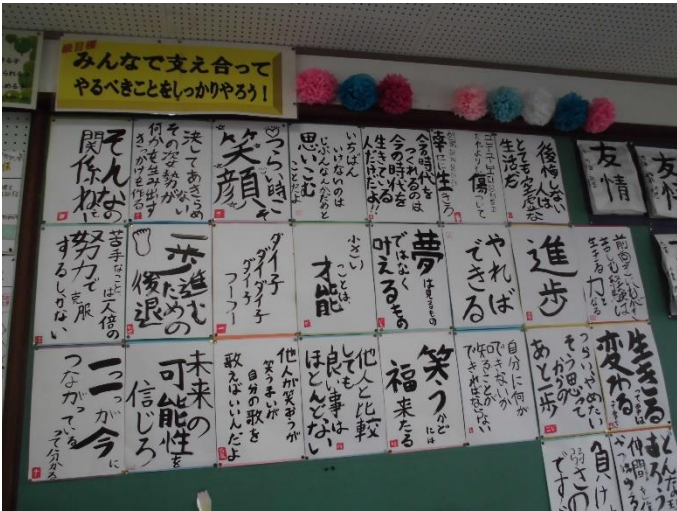 みんなで支え合って
やるべきことをしっかりやろう！
そんなの
関係ねえ
決してあきらめない
その姿勢が
何かを生み出す
きっかけを作る
つらい時こそ
笑顔
いちばん
いけないのは
じぶんなんかだめだと
思いこむ
ことだよ
今の時代を
つくれるのは
今の時代を
生きている
人だけだよ!!
傷つ
幸に生きろ
後悔しない
人は
とても空虚な
生活だ
友情
友情
苦手なことは
人一倍の
努力で
克服
するしかない
一歩進む
ための
後退
ダイ子
ダイダイ子
ダイ子
フーフー
小さい
ことは
才能
夢は見るもの
ではなく
叶えるもの
やれば
できる
進歩
苦しい経験は
生きる力になる
一つ一つが今に
つながっている
未来の
可能性を
信じろ
他人が笑おうが
笑うまいが
自分の歌を
歌えばいいんだよ
他人と比較
しても
良い事は
ほとんどない
笑うかどには
福来たる
自分に何が
できないか
つらい やめたい
そう思って
からの
あと一歩
生きる
変わる
負け
弱さの
です
仲間